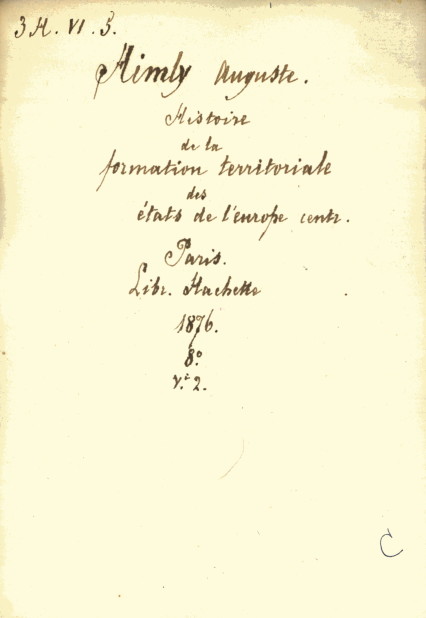 3 H. VI. 5.
Himly Auguste.
Histoire
de la
formation territoriale
des
états de l'europe centr.
Paris.
Libr. Hachette
1876.
8º
v.i 2.
C